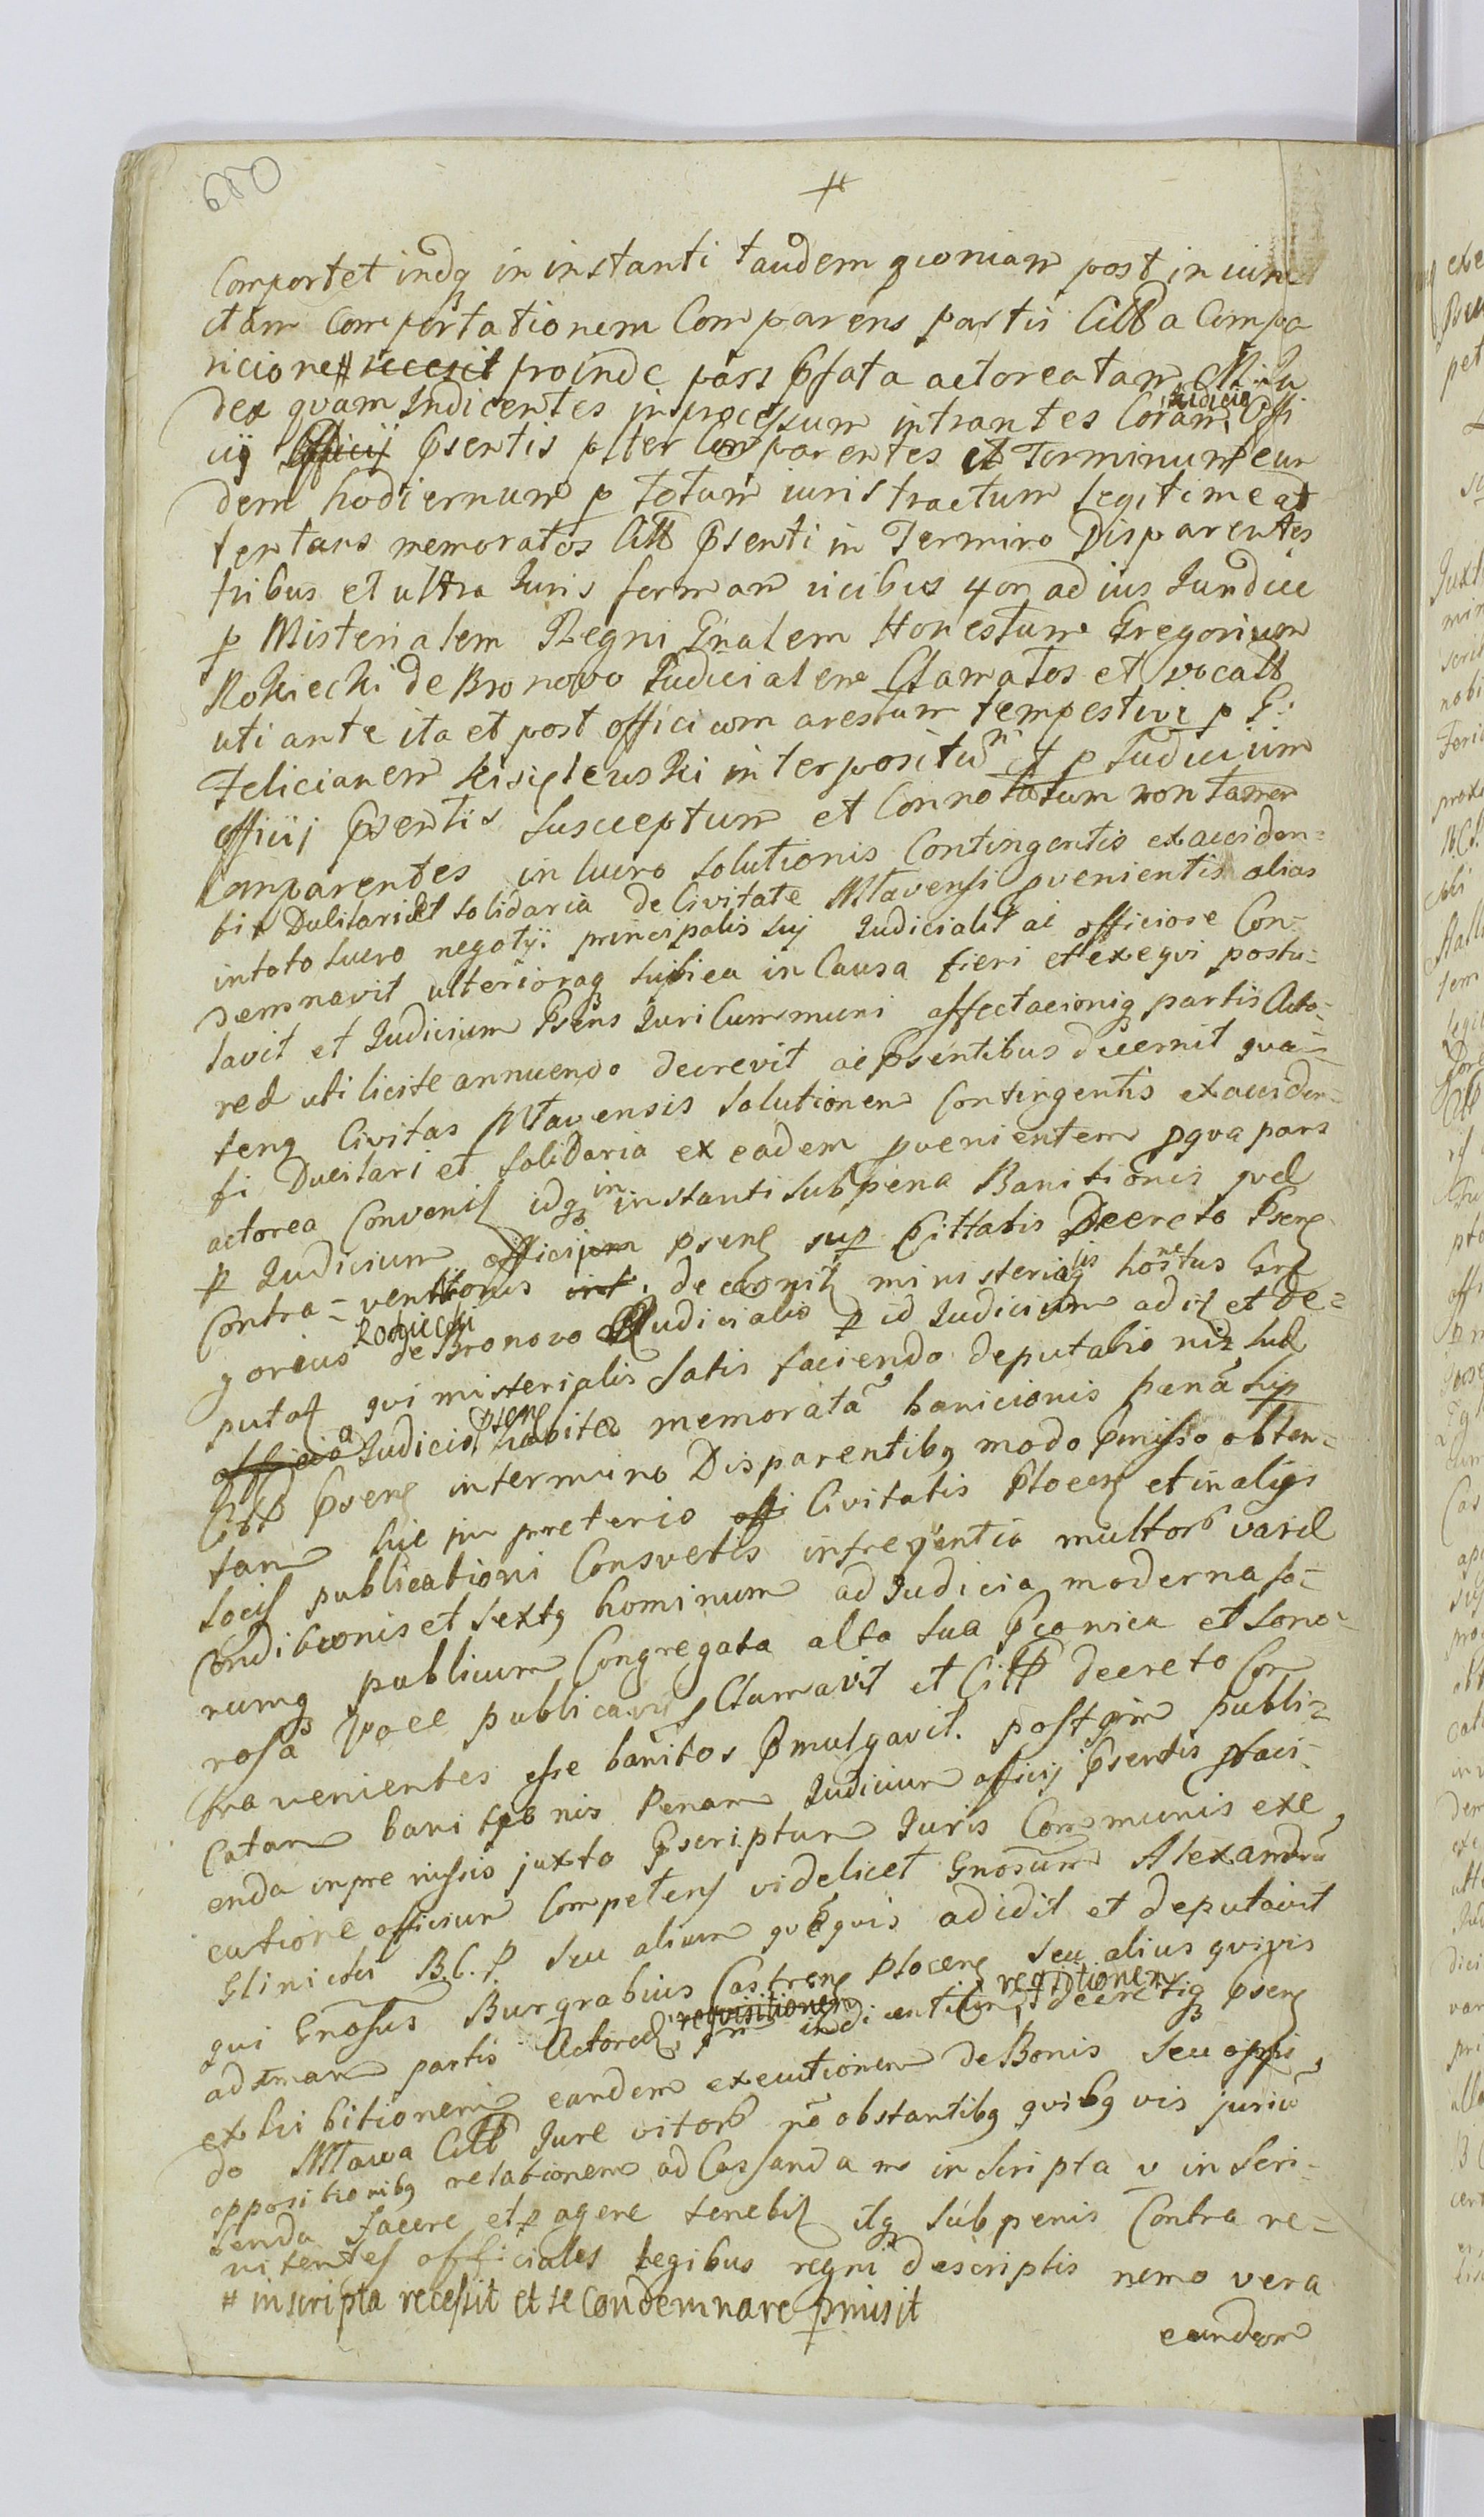 680
#
Comportet indq in instanti tandem qvoniam post iniun
ctam Comportationem Comparens partis Citt a Compa
ricione # recesit proinde pars Psata actorea tam
dex qvam Indicentes in processum intrantes Coram Iudicio Offi
cij Officij Psentis plter Comparentes et Terminum eun
dem hodiernum p totum iuris tractum legitime at
tentans memoratos Citt Psenti in Termino Disparentes
tribus et ultra Iuris formam vicibus 4or ad ius Iundice
p Misterialem Regni Gnalem Honestum Gregorium
Rokiecki de Bronovo Iudicialem Clamatos et vocatt
uti ante ita et post officiom arestum tempestive p G:
Felicianem Kisielewski interpositu et p Iudicium
officij Psentis Susceptum et Connotatum non tamen
Comparentes in lucro solutionis Contingentis ex acciden=
ti Dulilari et solidaria de Civitate Mlavensi pvenientis alias
in toto lucro negotij principalis sui Iudicialit ac officiose Con=
demnavit ulterioraq Iudicia in Causa fieri et exeqvi postu=
lavit et Iudicium Psens Iuri Cummuni affectacioniq partis Acto=
rea uti licite annuendo decrevit ac psentibus decernit qva=
tenq Civitas Mlavensis solutionem Contingentis ex acciden=
ti Ducilari et Solidaria ex eadem pvenientem pqva pars
actorea Convenit idq in instanti sub pena Banitionis qvd
p Iudicium officijum psens sup Cittatis Decreto Psens
Contra=ventionis int. decernit ministerialis hontus Gre
goreus Rokiecki de Bronovo Iudicialis p id Iudicium adit et de=
putat qvi misterialis satis faciendo deputatio niz sub
officio a Iudicio psens habitea memoratã banicionis penã sup
Citt Psens in termino Disparentibq modo Pmisso obten=
tam hic in pretorio offi Civitatis Plocens et in alijs
locis publicationi Consvetis infreqventia multorb varij
Conditionis et sextq hominum ad Iudicia moderna fo=
rumq publicum Congregata alta sua Pconica et sono=
rosa voce publicavit Clamavit et Citt decreto Con
travenientes esse banitos Pmulgavit. post qm publi=
catam banitionis Penam Iudicium officij Psentis pfaci=
enda in premissio juxta Pscriptum Iuris Communis exe
cutione officium Competens videlicet Gnosum Alexandrũ
Glinicki B.C.P seu alium qvẽqvis adidit et deputavit
qvi Gnosus Burgrabius Castrens Plocens seu alius qvivis
ad Imam partis Actorea, requisitionem indicentium requisitionem decretiq Psens
exhibitionem eandem executionem de Bonis seu
do Mlawa Citt Iure vitorb nẽ obstantibq qvibq vis juriũ
oppositionibq relationem ad Cassandam inscripta v inscri=
benda facere et p agere tenebit itq sub penis Contra re=
nitentes officiales legibus regni descriptis nemo vera
# inscripta recessit et se Condemnare pmisit
eundem